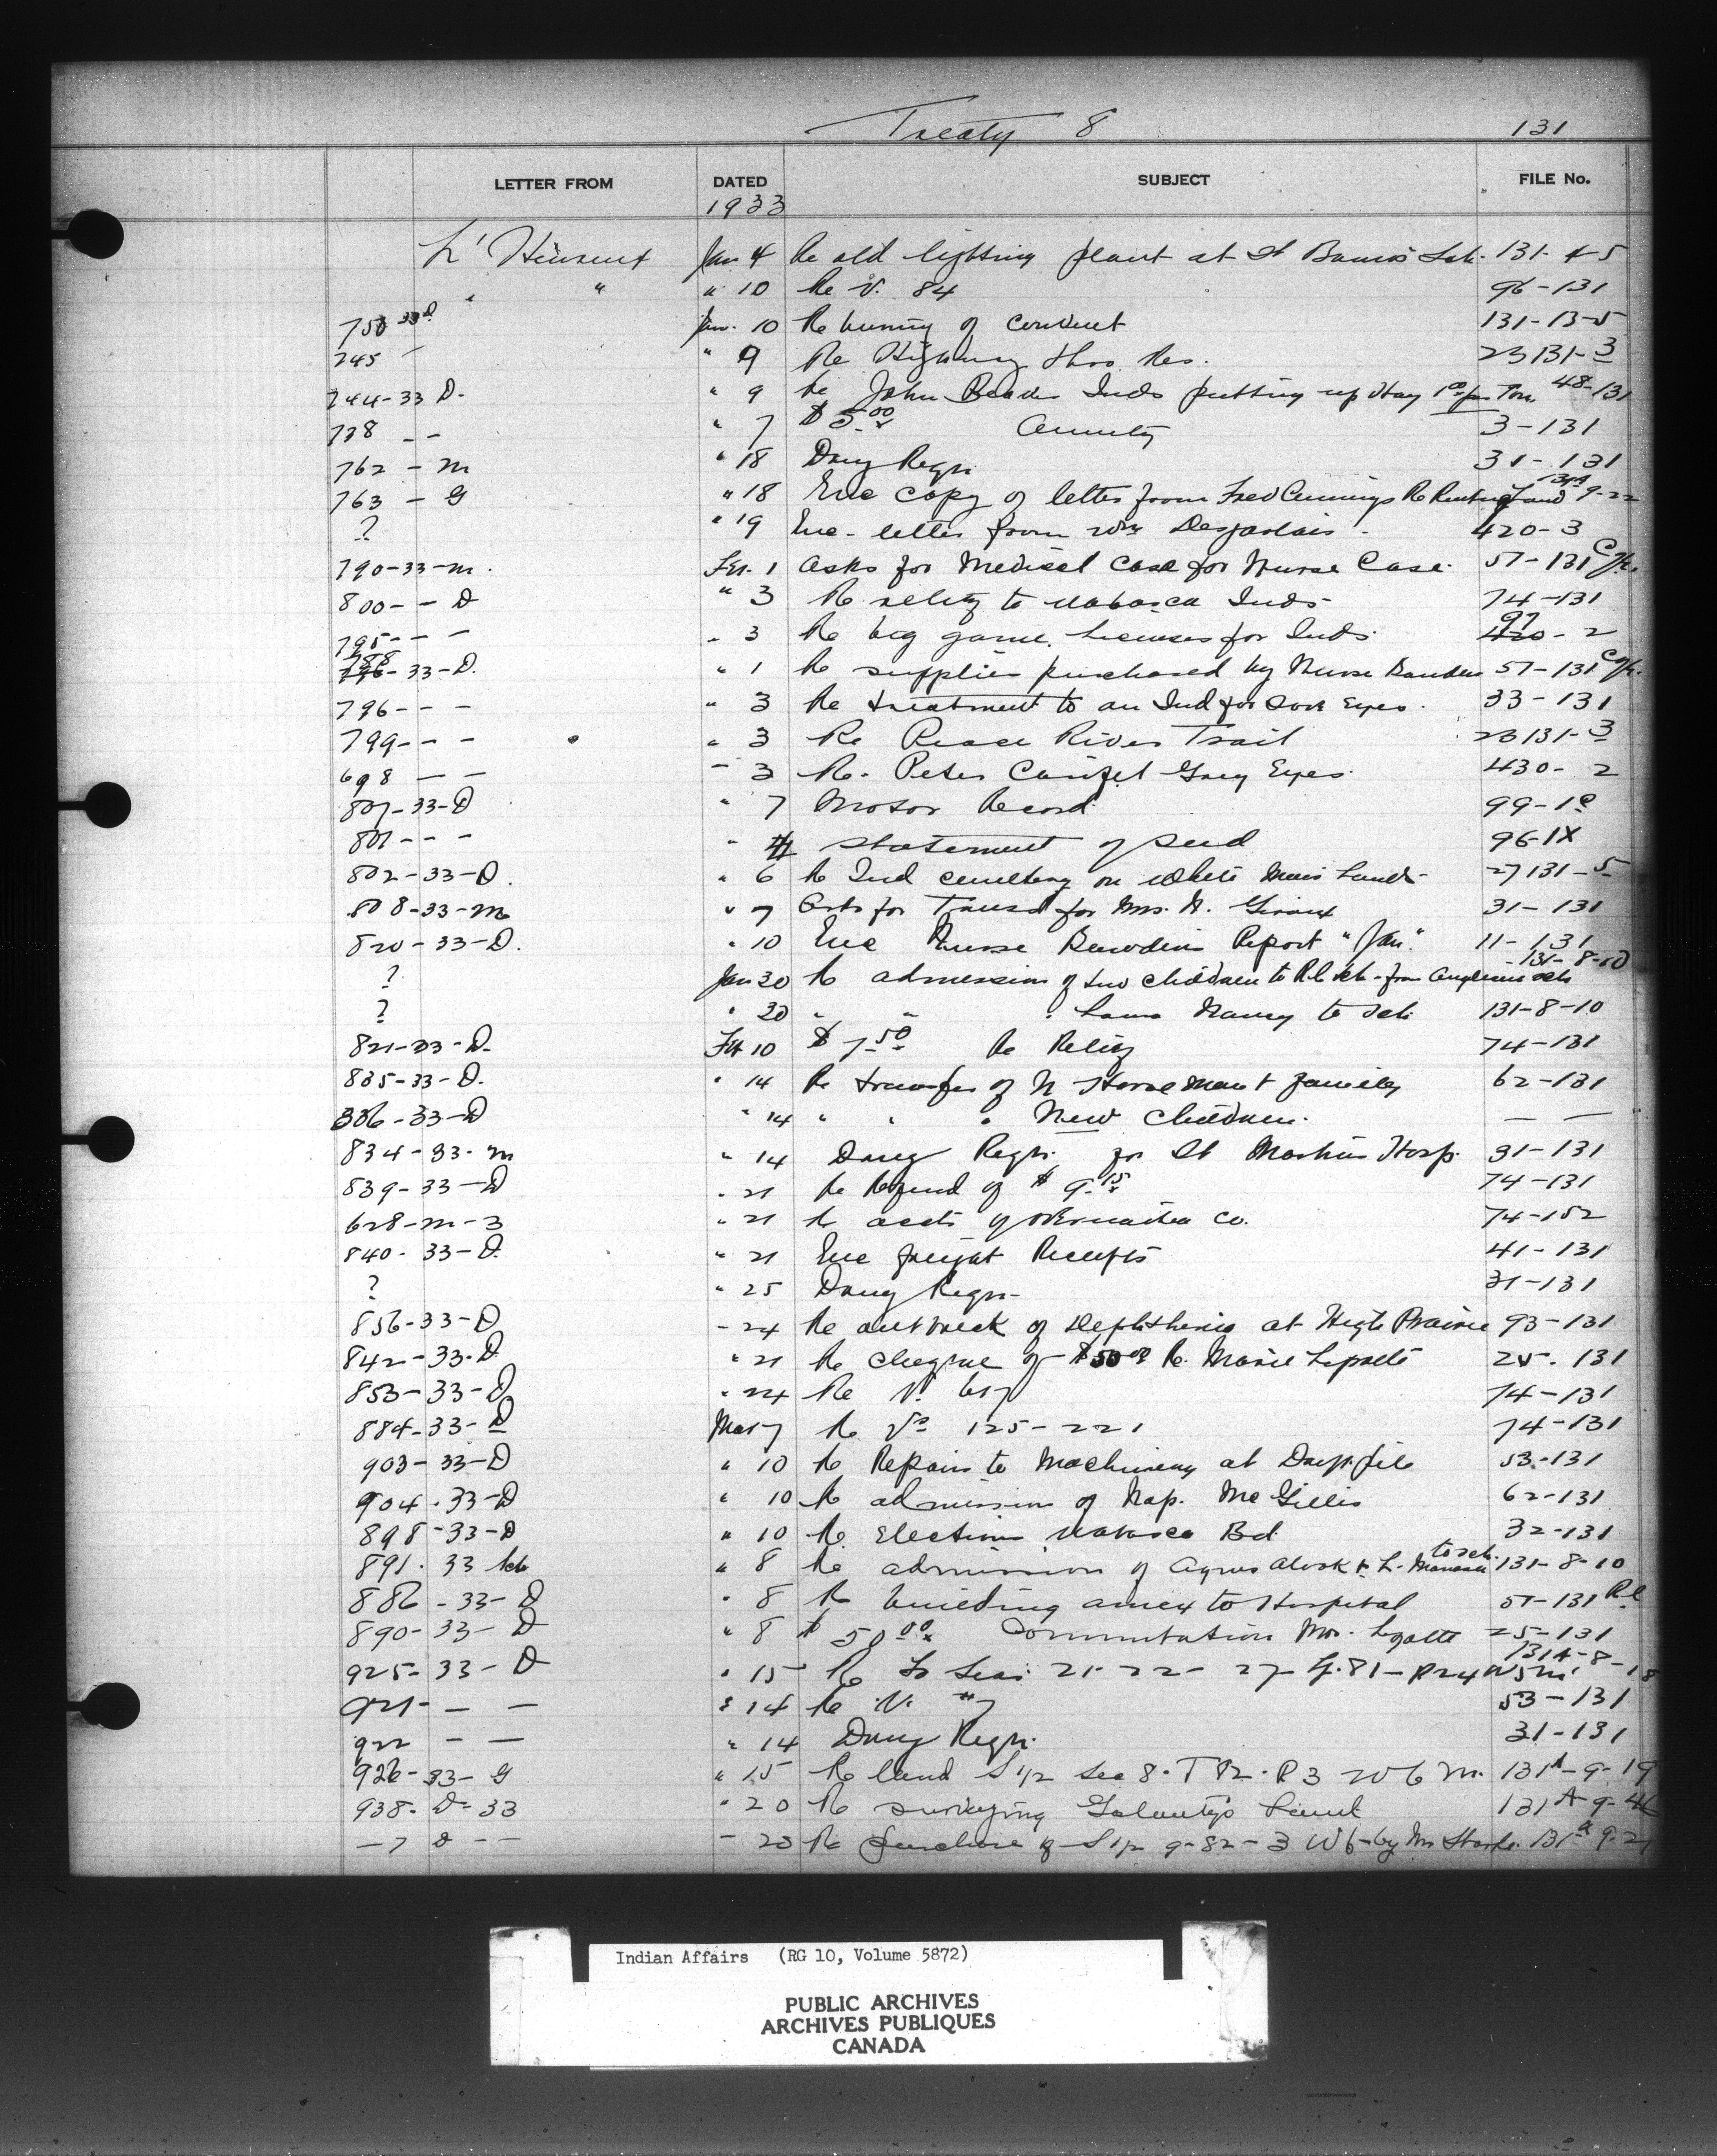 Treaty 8 131
LETTER FROM DATED SUBJECT FILE No.
1933
L' Jan 4 Re old lighting plant at St Sch. 131-
" " " 10 Re V. 84 96-131
750 33 D. Jan. 10 Re of Convent 131-13-5
745 - " 9 Re Highway thro Res. 23131-3
744-33 D. " 9 Re John Inds putting up Hay Ton 48-131
738 - - " 7 $5.00 Annuity 3-131
762 - m " 18 Drug Reqn. 31-131
763 - G " 18 Enc copy of letter from Fred Re Land 131A 9-22
? " 19 Enc. letter from Wm Desjarlais. 420-3
790-33-m. Feb. 1 Asks for Medical Case for Nurse Case. 57-131
800- - D " 3 Re relief to Wabasca Inds- 74-131
795- - - " 3 Re big game licenses for Inds. 97 420-2
788 796-33-D. " 1 Re supplies purchased by Nurse 57-131
796- - - " 3 Re treatment to an Ind for Sore Eyes. 33-131
799- - - " 3 Re Peace River Trail 23131-3
698 - - " 3 Re. Peter Grey Eyes. 430-2
807-33-D " 7 Motor Record 99-1
801- - - " statement of seed 96-1X
802-33-D. " 6 Re Ind cemetery on White Mans Land- 27131-5
808-33-m " 7 Asks for for Mrs. Giroux 31-131
820-33-D. " 10 Enc Nurse Report "Jan". 11-131
? Jan 30 Re admission of two children to R.C. sch-from sch 131-8-10
? " 30 " " " to sch 131-8-10
821-33-D. Feb 10 $7.50 Re Relief 74-131
835-33-D. " 14 Re transfer of N Horseman & family 62-131
836-33-D " 14 " " " New Children. — —
834-33-m " 14 Drug Reqn. for St Martins Hosp. 31-131
839-33-D " 21 Re Refund of $9.15 74-131
628-m-3 " 21 Re accts of Co. 74-152
840-33-D. " 21 Enc freight Receipts 41-131
? " 25 Drug Reqn- 31-131
856-33-D " 24 Re outbreak of Diphtheria at High Prairie 93-131
842-33-D " 21 Re cheque of $50.00 Re. Marie 25-131
853-33-D " 24 Re V. 74-131
884-33-D Mar 7 Re Vo 125-221 74-131
903-33-D " 10 Re Repairs to Machinery at Driftpile 53-131
904-33-D " 10 Re admission of Nap. McGillis 62-131
898-33-D " 10 Re Election Wabasca Bd. 32-131
891-33 " 8 Re admission of Agnes & L. to sch. 131-8-10
886-33-D " 8 Re building annex to Hospital 57-131 R.C
890-33-D " 8 $50.00 Commutation Mrs. 25-131
925-33-D " 15 Re Secs. 21-22-27 R24 W5m. 131A-8-18
921- - - " 14 Re V. 7 53-131
922 - - " 14 Drug Reqn. 31-131
926-33-G " 15 Re land S 1/2 Sec 8-T 82-R 3 W 6 m. 131A-9-19
938-D-33 " 20 Re surveying Land 131A-9-
-7 D - - " 20 Re Purchase of S 1/2 9-82-3 W6-by Mr 131A 9-
Indian Affairs (RG 10, Volume 5872)
PUBLIC ARCHIVES
ARCHIVES PUBLIQUES
CANADA